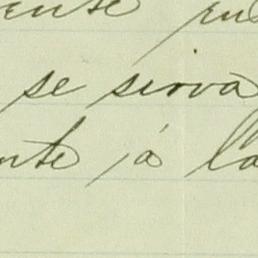 ente pu
se sirva
nte á la